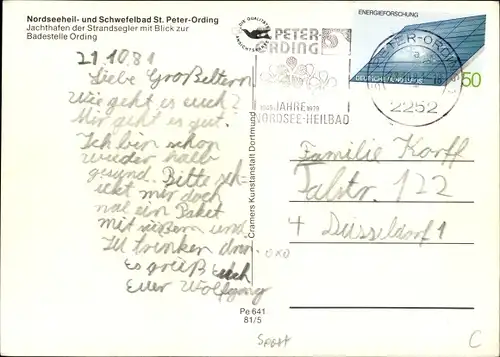 Nordseeheil- und Schwefelbad St. Peter-Ording
Jachthafen der Strandsegler mit Blick zur
Badestelle Ording
21.10.81
Liebe Großeltern
Wie geht es euch?
Mir geht es gut.
Ich bin schon
wieder halb
gesund. Bitte sch-
ickt mir doch
mal ein Paket
mit süßem und
zu trinken drin.
Es grüßt Euch
Euer Wolfgang
Cramers Kunstanstalt Dortmund
Pe 641
81/5
PETER-
ORDING
JAHRE 1979
NORDSEE-HEILBAD
2252
ENERGIEFORSCHUNG
50
Familie Korff
Talstr. 122
4 Düsseldorf 1
Sport
C